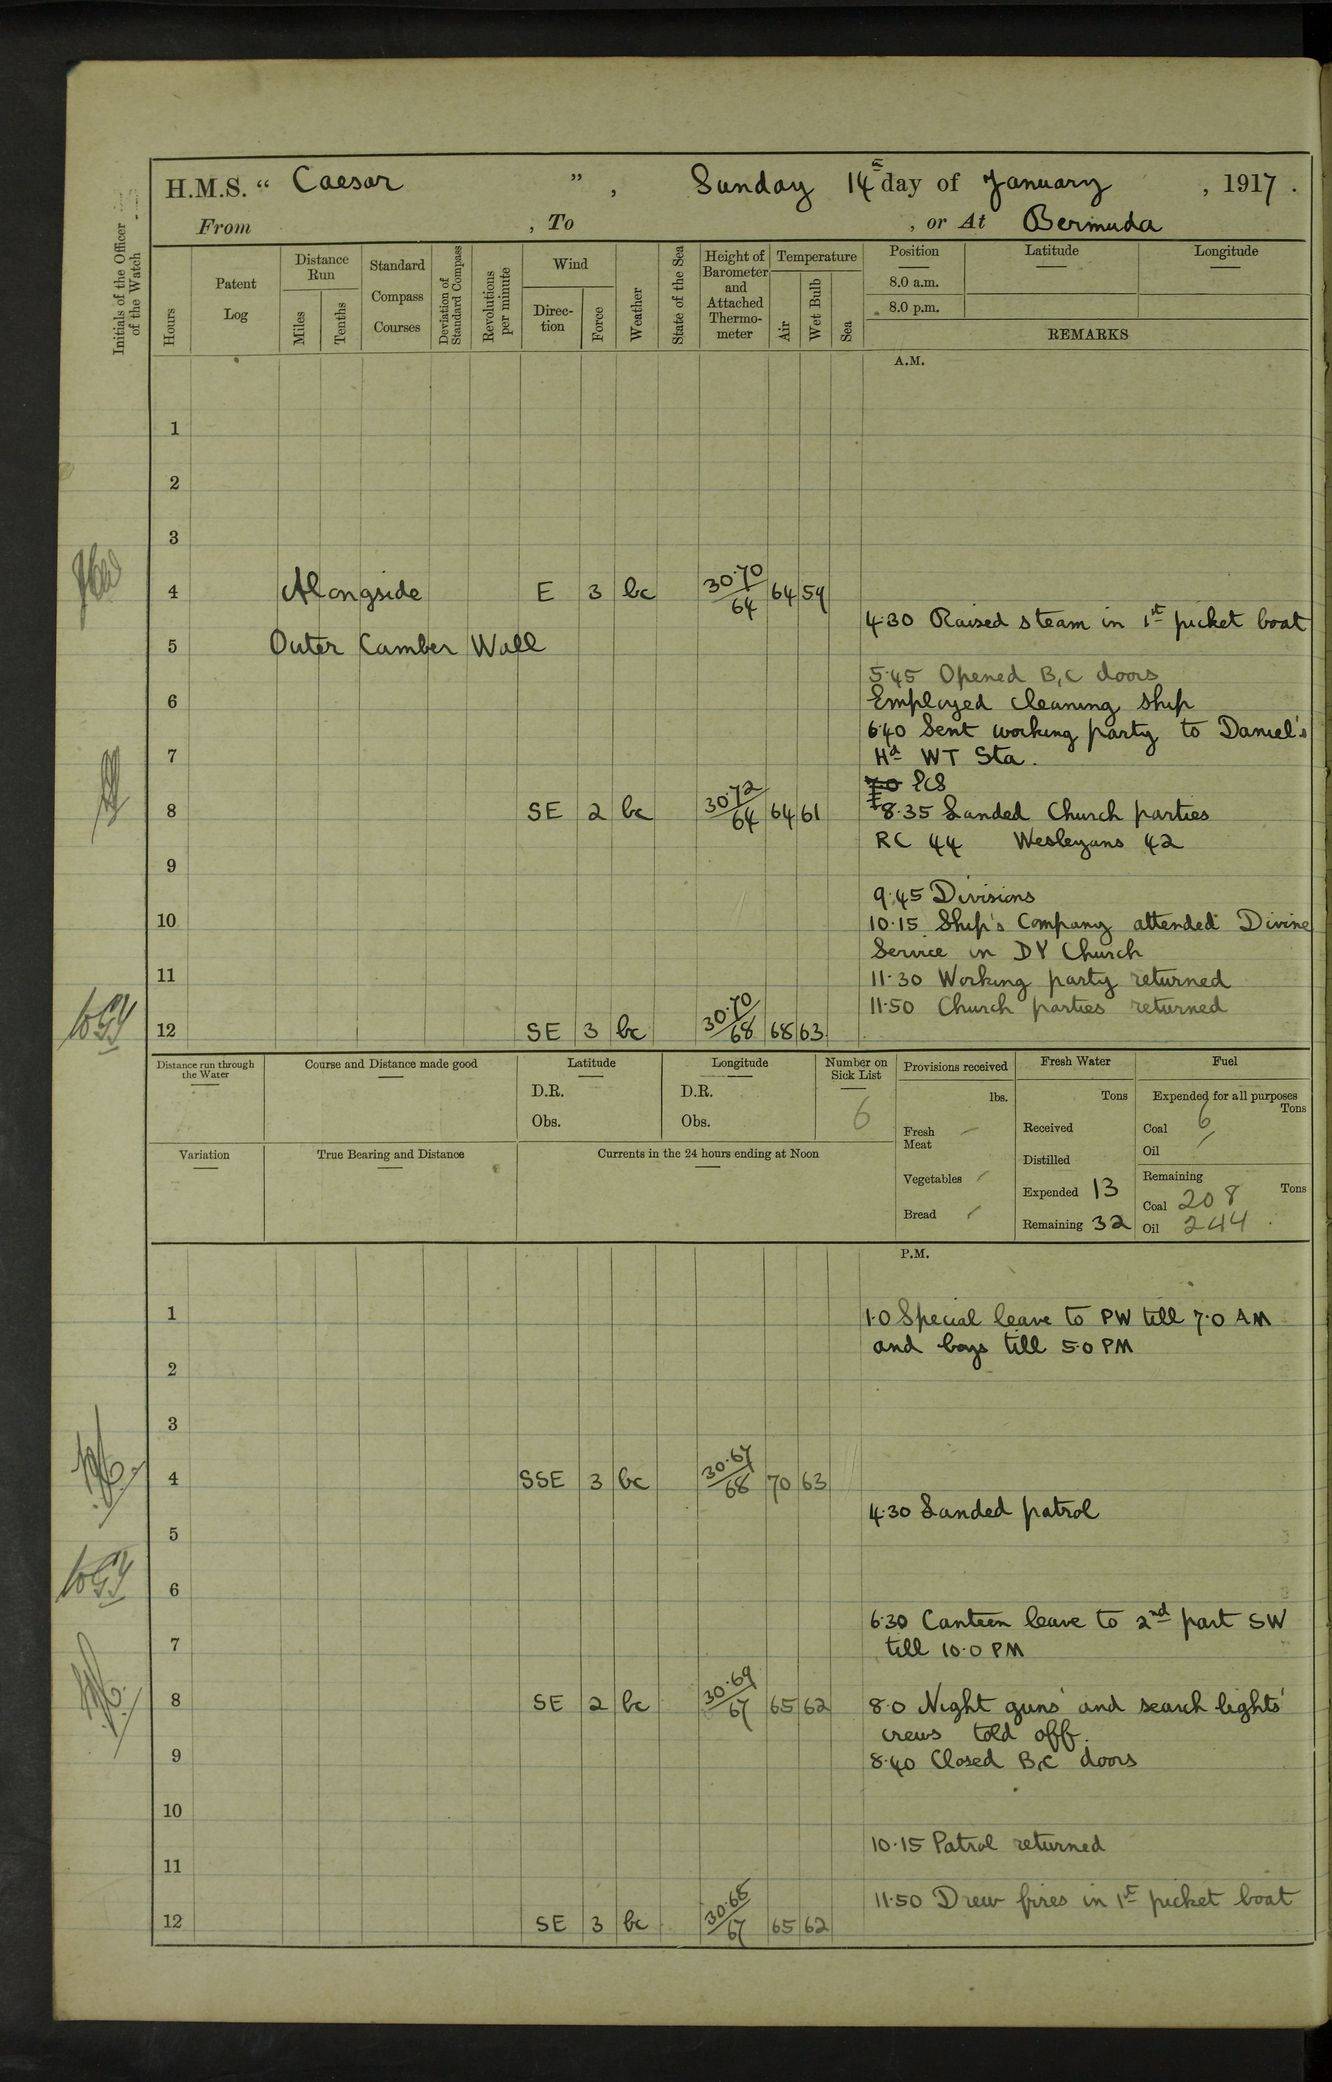 H.M.S. “ Caesar ” , Sunday 14th day of January , 1917 .
From , To , or At Bermuda
Initials of the Officer of the Watch
Hours
Patent Log
Distance Run
Miles
Tenths
Standard Compass Courses
Deviation of Standard Compass
Revolutions per minute
Wind
Direction
Force
Weather
State of the Sea
Height of Barometer and Attached Thermometer
Temperature
Air
Wet Bulb
Sea
Position Latitude Longitude
8.0 a.m.
8.0 p.m.
REMARKS
A.M.
1
2
3
4 Alongside E 3 bc 30·70/64 64 59
4·30 Raised steam in 1st picket boat
5 Outer Camber Wall
5·45 Opened B, C doors
6 Employed cleaning ship
6·40 Sent working party to Daniel's
7 Hd WT Sta.
8 SE 2 bc 30·72/64 64 61
8·35 Landed Church parties
RC 44 Wesleyans 42
9
9·45 Divisions
10 10·15 Ship's Company attended Divine
Service in DY Church
11 11·30 Working party returned
11·50 Church parties returned
12 SE 3 bc 30·70/68 68 63
Distance run through the Water
Course and Distance made good
Latitude
D.R.
Obs.
Longitude
D.R.
Obs.
Number on Sick List
6
Variation
True Bearing and Distance
Currents in the 24 hours ending at Noon
Provisions received
lbs.
Fresh Meat –
Vegetables –
Bread –
Fresh Water
Tons
Received
Distilled
Expended 13
Remaining 32
Fuel
Expended for all purposes
Tons
Coal 6
Oil –
Remaining
Tons
Coal 208
Oil 244
P.M.
1 1·0 Special leave to PW till 7·0 AM
and boys till 5·0 PM
2
3
4 SSE 3 bc 30·67/68 70 63
4·30 Landed patrol
5
6
6·30 Canteen leave to 2nd part SW
7 till 10·0 PM
8 SE 2 bc 30·69/67 65 62 8·0 Night guns' and search lights'
crews told off.
9 8·40 Closed B, C doors
10
10·15 Patrol returned
11
11·50 Drew fires in 1st picket boat
12 SE 3 bc 30·68/67 65 62